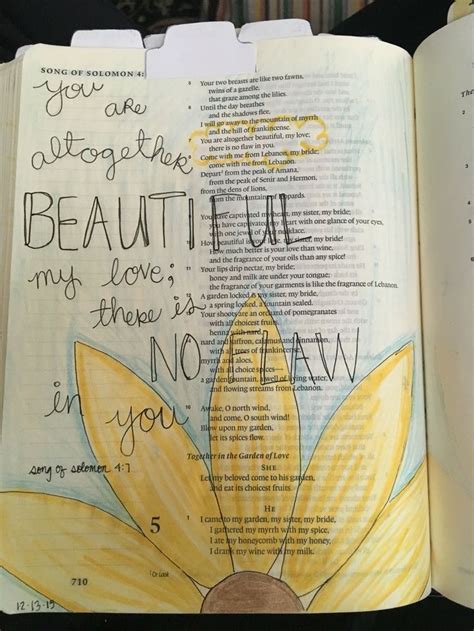 SONG OF SOLOMON 4:
you
are
altogether
BEAUTIFUL
my love;
there is
NO FLAW
in you
song of solomon 4:7
5 Your two breasts are like two fawns,
twins of a gazelle,
that graze among the lilies.
6 Until the day breathes
and the shadows flee,
I will go away to the mountain of myrrh
and the hill of frankincense.
You are altogether beautiful, my love;
there is no flaw in you.
Come with me from Lebanon, my bride;
come with me from Lebanon.
Depart¹ from the peak of Amana,
from the peak of Senir and Hermon,
from the dens of lions,
from the mountains of leopards.
You have captivated my heart, my sister, my bride;
you have captivated my heart with one glance of your eyes,
with one jewel of your necklace.
How beautiful is your love, my sister, my bride!
How much better is your love than wine,
and the fragrance of your oils than any spice!
Your lips drip nectar, my bride;
honey and milk are under your tongue;
the fragrance of your garments is like the fragrance of Lebanon.
A garden locked is my sister, my bride,
a spring locked, a fountain sealed.
Your shoots are an orchard of pomegranates
with all choicest fruits,
henna with nard,
nard and saffron, calamus and cinnamon,
with all trees of frankincense,
myrrh and aloes,
with all choice spices—
a garden fountain, a well of living water,
and flowing streams from Lebanon.
16 Awake, O north wind,
and come, O south wind!
Blow upon my garden,
let its spices flow.
Together in the Garden of Love
SHE
Let my beloved come to his garden,
and eat its choicest fruits.
HE
5 I came to my garden, my sister, my bride,
I gathered my myrrh with my spice,
I ate my honeycomb with my honey,
I drank my wine with my milk.
¹ Or Look
710
12.13.15